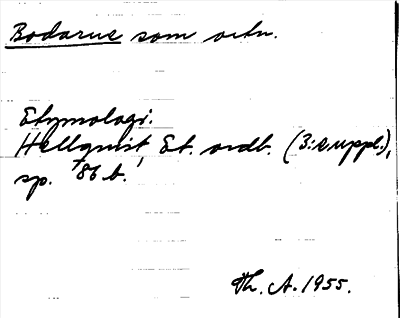 Bodarne som ortn.
Etymologi.
Hellquist, Et. ordb. (3: suppl.),
sp. 86 b.
Th. A. 1955.